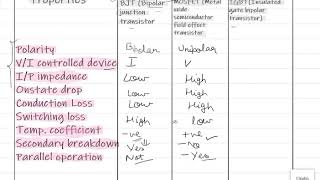 Properties BJT (Bipolar junction transistor) MOSFET (Metal oxide semiconductor field effect transistor) IGBT (Insulated gate bipolar transistor)
Polarity Bipolar Unipolar
V/I controlled device I V
I/P impedance Low High
Onstate drop Low High
Conduction Loss Low High
Switching loss High low
Temp. coefficient -ve +ve ✓
Secondary breakdown Yes -No
Parallel operation Not -Yes